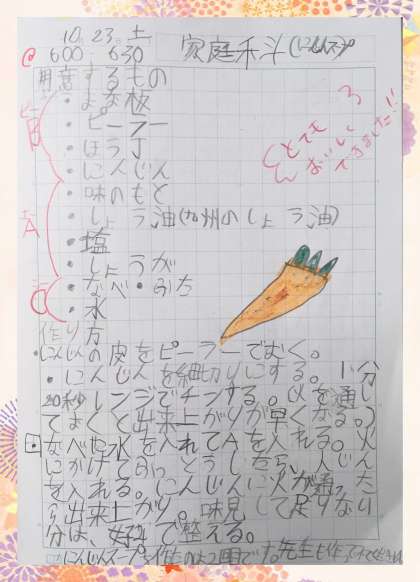 10. 23. 土
6:00 - 6:30
家庭科(にんじんスープ)
用意するもの
・まな板
・ピーラー
・ほう丁
・にんじん
・味のもと
・しょうゆ油(九州のしょうゆ油)
・塩
・しょうが
・なべ・ふた
・水
A
とても
おいしい
できました!!
作り方
・にんじんの皮をピーラーでむく。
・にんじんを細切りにする。1分
20秒レンジでチンする。(火を通し
ておくと出来上がりが早くなる。)
・なべに水を入れてAを入れる。火
にかけてふっとうしたら、人じん
を入れる。にんじんに火が通った
ら出来上がり。味見して足りない
分は、好みで整える。
にんじんスープを作るのは2回目です。先生も作ってみてくださいね